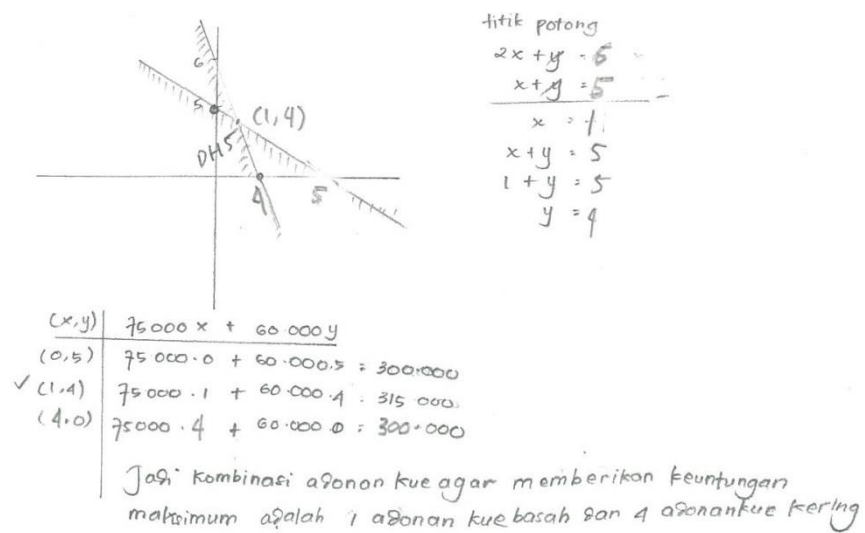 6
5
(1,4)
DHS
4
5
titik potong
2x + y = 6
x + y = 5
x = 1
x + y = 5
1 + y = 5
y = 4
(x,y) 75000 x + 60.000 y
(0,5) 75 000.0 + 60.000.5 = 300.000
✓ (1,4) 75000 . 1 + 60.000 . 4 = 315 000.
(4,0) 75000 . 4 + 60.000.0 = 300.000
Jadi kombinasi adonan kue agar memberikan keuntungan
maksimum adalah 1 adonan kue basah dan 4 adonan kue kering